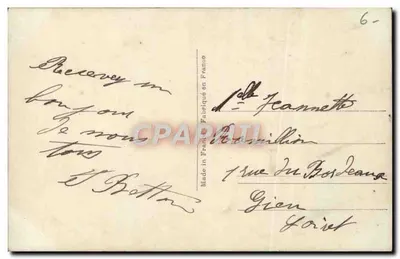 6-
Recevez un
bonjour
de nous
tous
Made in France Fabriqué en France
CPARAMA
Mlle Jeannette
Romillion
1 rue du Bordeaux
Gien
Loiret